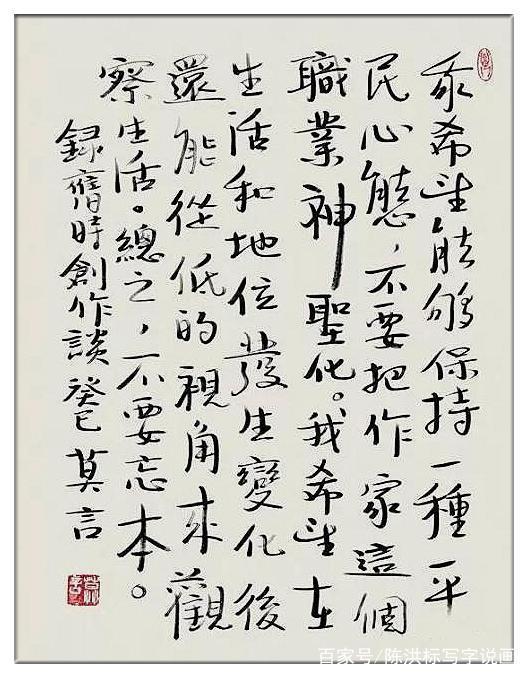 我希望能够保持一種平
民心態，不要把作家這個
職業神聖化。我希望在
生活和地位發生變化後
還能從低的視角來觀
察生活。總之，不要忘本。
録舊時創作談 癸巳 莫言
百家号/陈洪标写字说画